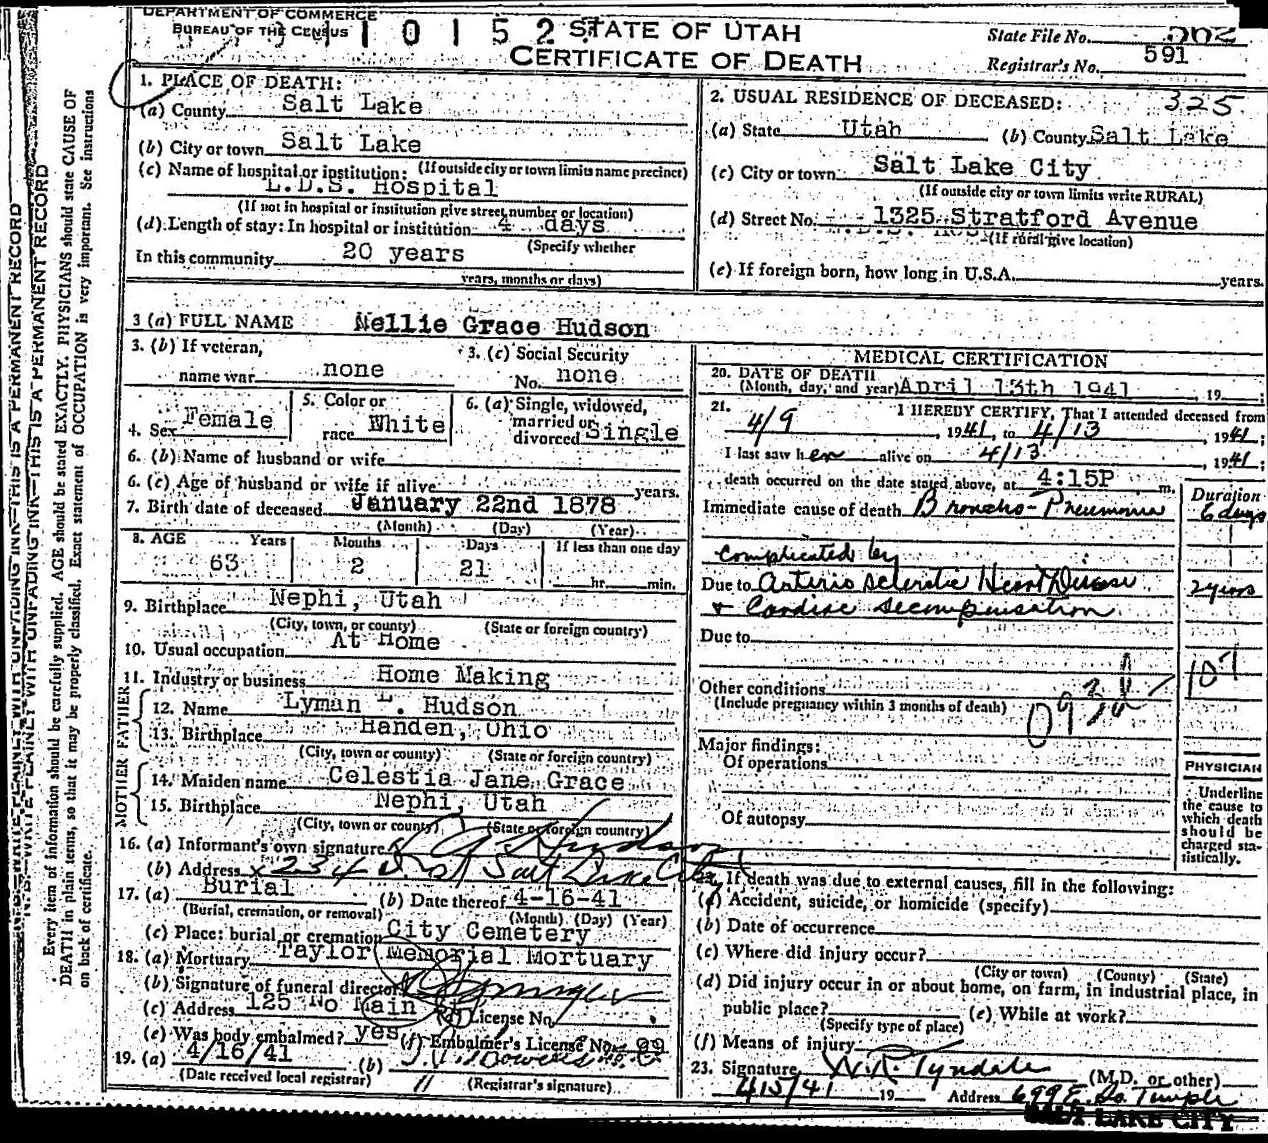 DEPARTMENT OF COMMERCE
BUREAU OF THE CENSUS
1 0 1 5 2
STATE OF UTAH
CERTIFICATE OF DEATH
State File No.
Registrar's No. 591
1. PLACE OF DEATH:
(a) County Salt Lake
(b) City or town Salt Lake
(c) Name of hospital or institution: (If outside city or town limits name precinct)
L.D.S. Hospital
(If not in hospital or institution give street number or location)
(d) Length of stay: In hospital or institution 4 days
(Specify whether
In this community 20 years
years, months or days)
2. USUAL RESIDENCE OF DECEASED: 325
(a) State Utah (b) County Salt Lake
(c) City or town Salt Lake City
(If outside city or town limits write RURAL)
(d) Street No. 1325 Stratford Avenue
(If rural give location)
(e) If foreign born, how long in U.S.A. years.
3 (a) FULL NAME Nellie Grace Hudson
3. (b) If veteran,
name war none
3. (c) Social Security
No. none
4. Sex Female
5. Color or
race White
6. (a) Single, widowed,
married or
divorced Single
6. (b) Name of husband or wife
6. (c) Age of husband or wife if alive years.
7. Birth date of deceased January 22nd 1878
(Month) (Day) (Year)
8. AGE Years Months Days If less than one day
63 2 21 hr. min.
9. Birthplace Nephi, Utah
(City, town, or county) (State or foreign country)
10. Usual occupation At Home
11. Industry or business Home Making
FATHER
12. Name Lyman L. Hudson
13. Birthplace Handen, Ohio
(City, town or county) (State or foreign country)
MOTHER
14. Maiden name Celestia Jane Grace
15. Birthplace Nephi, Utah
(City, town or county) (State or foreign country)
16. (a) Informant's own signature Hudson
(b) Address 234 Salt Lake City
17. (a) Burial (b) Date thereof 4-16-41
(Burial, cremation, or removal) (Month) (Day) (Year)
(c) Place: burial or cremation City Cemetery
18. (a) Mortuary Taylor Memorial Mortuary
(b) Signature of funeral director
(c) Address 125 No Main St (d) License No.
(e) Was body embalmed? yes (f) Embalmer's License No. 99
19. (a) 4/16/41 (b)
(Date received local registrar) (Registrar's signature)
MEDICAL CERTIFICATION
20. DATE OF DEATH
(Month, day, and year) April 13th 1941, 19 ;
21. I HEREBY CERTIFY, That I attended deceased from
4/9, 1941, to 4/13, 1941;
I last saw her alive on 4/13, 1941;
death occurred on the date stated above, at 4:15P m.
Duration
Immediate cause of death Broncho-Pneumonia 6 days
complicated by
Due to Arterio sclerotic Heart Disease 2 years
& Cardiac decompensation
Due to
107
Other conditions
(Include pregnancy within 3 months of death)
093d
Major findings:
Of operations
Of autopsy
PHYSICIAN
Underline
the cause to
which death
should be
charged sta-
tistically.
22. If death was due to external causes, fill in the following:
(a) Accident, suicide, or homicide (specify)
(b) Date of occurrence
(c) Where did injury occur?
(City or town) (County) (State)
(d) Did injury occur in or about home, on farm, in industrial place, in
public place? (e) While at work?
(Specify type of place)
(f) Means of injury
23. Signature W.R. Tyndale (M.D. or other)
4/15/41 19 Address 699 E. So Temple
SALT LAKE CITY
N. B. WRITE PLAINLY WITH UNFADING INK—THIS IS A PERMANENT RECORD
Every item of information should be carefully supplied. AGE should be stated EXACTLY. PHYSICIANS should state CAUSE OF
DEATH in plain terms, so that it may be properly classified. Exact statement of OCCUPATION is very important. See instructions
on back of certificate.